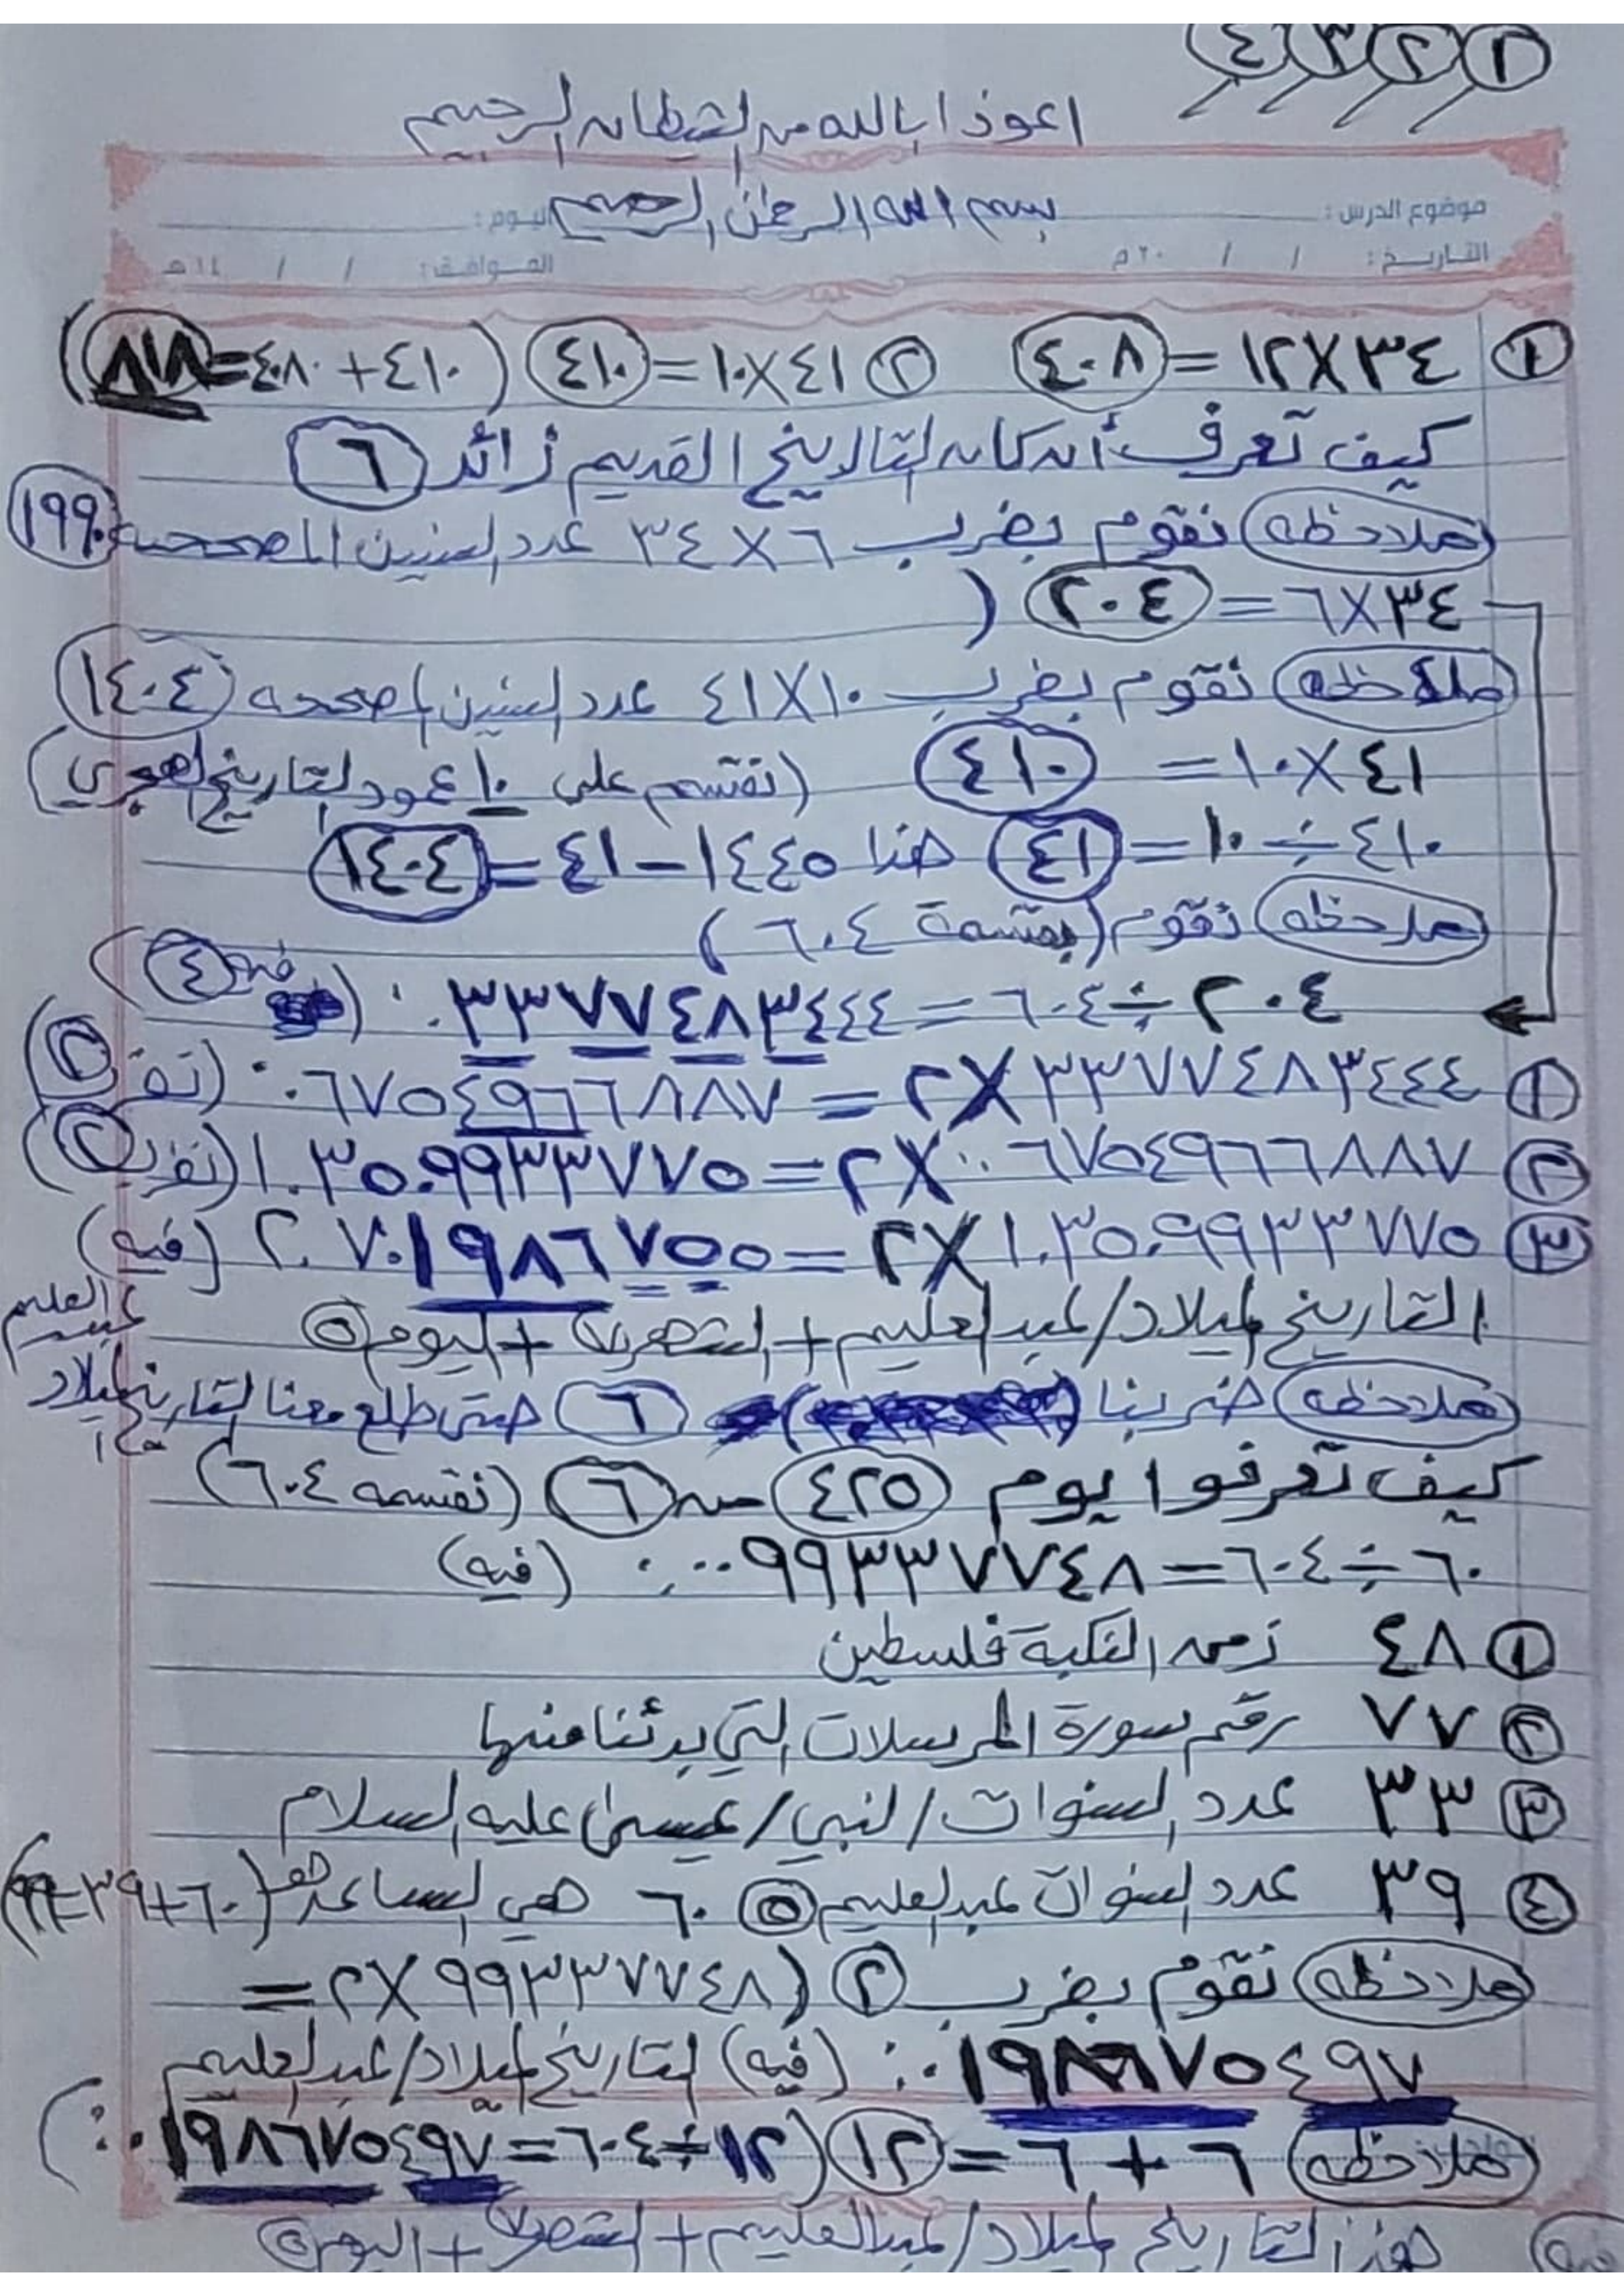 ١ ٢ ٣ ٤
اعوذ بالله من الشيطان الرجيم
بسم الله الرحمن الرحيم
موضوع الدرس : اليوم :
التاريخ : / / ٢٠م الموافق : / / ١٤هـ
١ ٣٤×١٢=٤٠٨ ٢ ٤١×١٠=٤١٠ (٤١٠+٤٠٨=٨١٨)
كيف تعرف أن كان التاريخ القديم زائد ٦
ملاحظه نقوم بضرب ٦×٣٤ عدد السنين المصححه ١٩٩٠
٣٤×٦=٢٠٤ (
ملاحظه نقوم بضرب ١٠×٤١ عدد السنين المصححه ١٤٠٤
٤١×١٠= ٤١٠ (نقسم على ١٠ عمود التاريخ الهجري)
٤١٠÷١٠=٤١ هنا ١٤٤٥-٤١=١٤٠٤
ملاحظه نقوم (بقسمة ٦٠٤)
٢٠٤÷٦٠٤=٠.٣٣٧٧٤٨٣٤٤٤ (فيه ٤)
١ ٣٣٧٧٤٨٣٤٤٤×٢=٠.٦٧٥٤٩٦٦٨٨٧
٢ ٠.٦٧٥٤٩٦٦٨٨٧×٢=١.٣٥٠٩٩٣٣٧٧٥
٣ ١.٣٥٠٩٩٣٣٧٧٥×٢=٢.٧٠١٩٨٦٧٥٥ (فيه)
التاريخ ميلاد/عبدالعليم+الشهر٧+اليوم٥
عبدالعليم
ملاحظه ضربنا ٦ حتى طلع معنا التاريخ ميلاد
كيف تعرفوا يوم ٤٢٥ من ٦ (نقسمه ٦٠٤)
٦٠÷٦٠٤=٠.٠٩٩٣٣٧٧٤٨ (فيه)
١ ٤٨ زمن النكبة فلسطين
٢ ٧٧ رقم سورة المرسلات التي بدئنا منها
٣ ٣٣ عدد السنوات/النبي/عيسى عليه السلام
٤ ٣٩ عدد السنوات عبدالعليم ٥ ٦٠ هي الساعه (٦٠+٣٩=٩٩)
ملاحظه نقوم بضرب ٢ (٩٩٣٣٧٧٤٨×٢=
٠.١٩٨٦٧٥٤٩٧ (فيه) التاريخ ميلاد/عبدالعليم
ملاحظه ٦+٦=١٢ (١٢÷٦٠٤=٠.٠١٩٨٦٧٥٤٩٧)
هذا التاريخ ميلاد/عبدالعليم+الشهر٧+اليوم٥